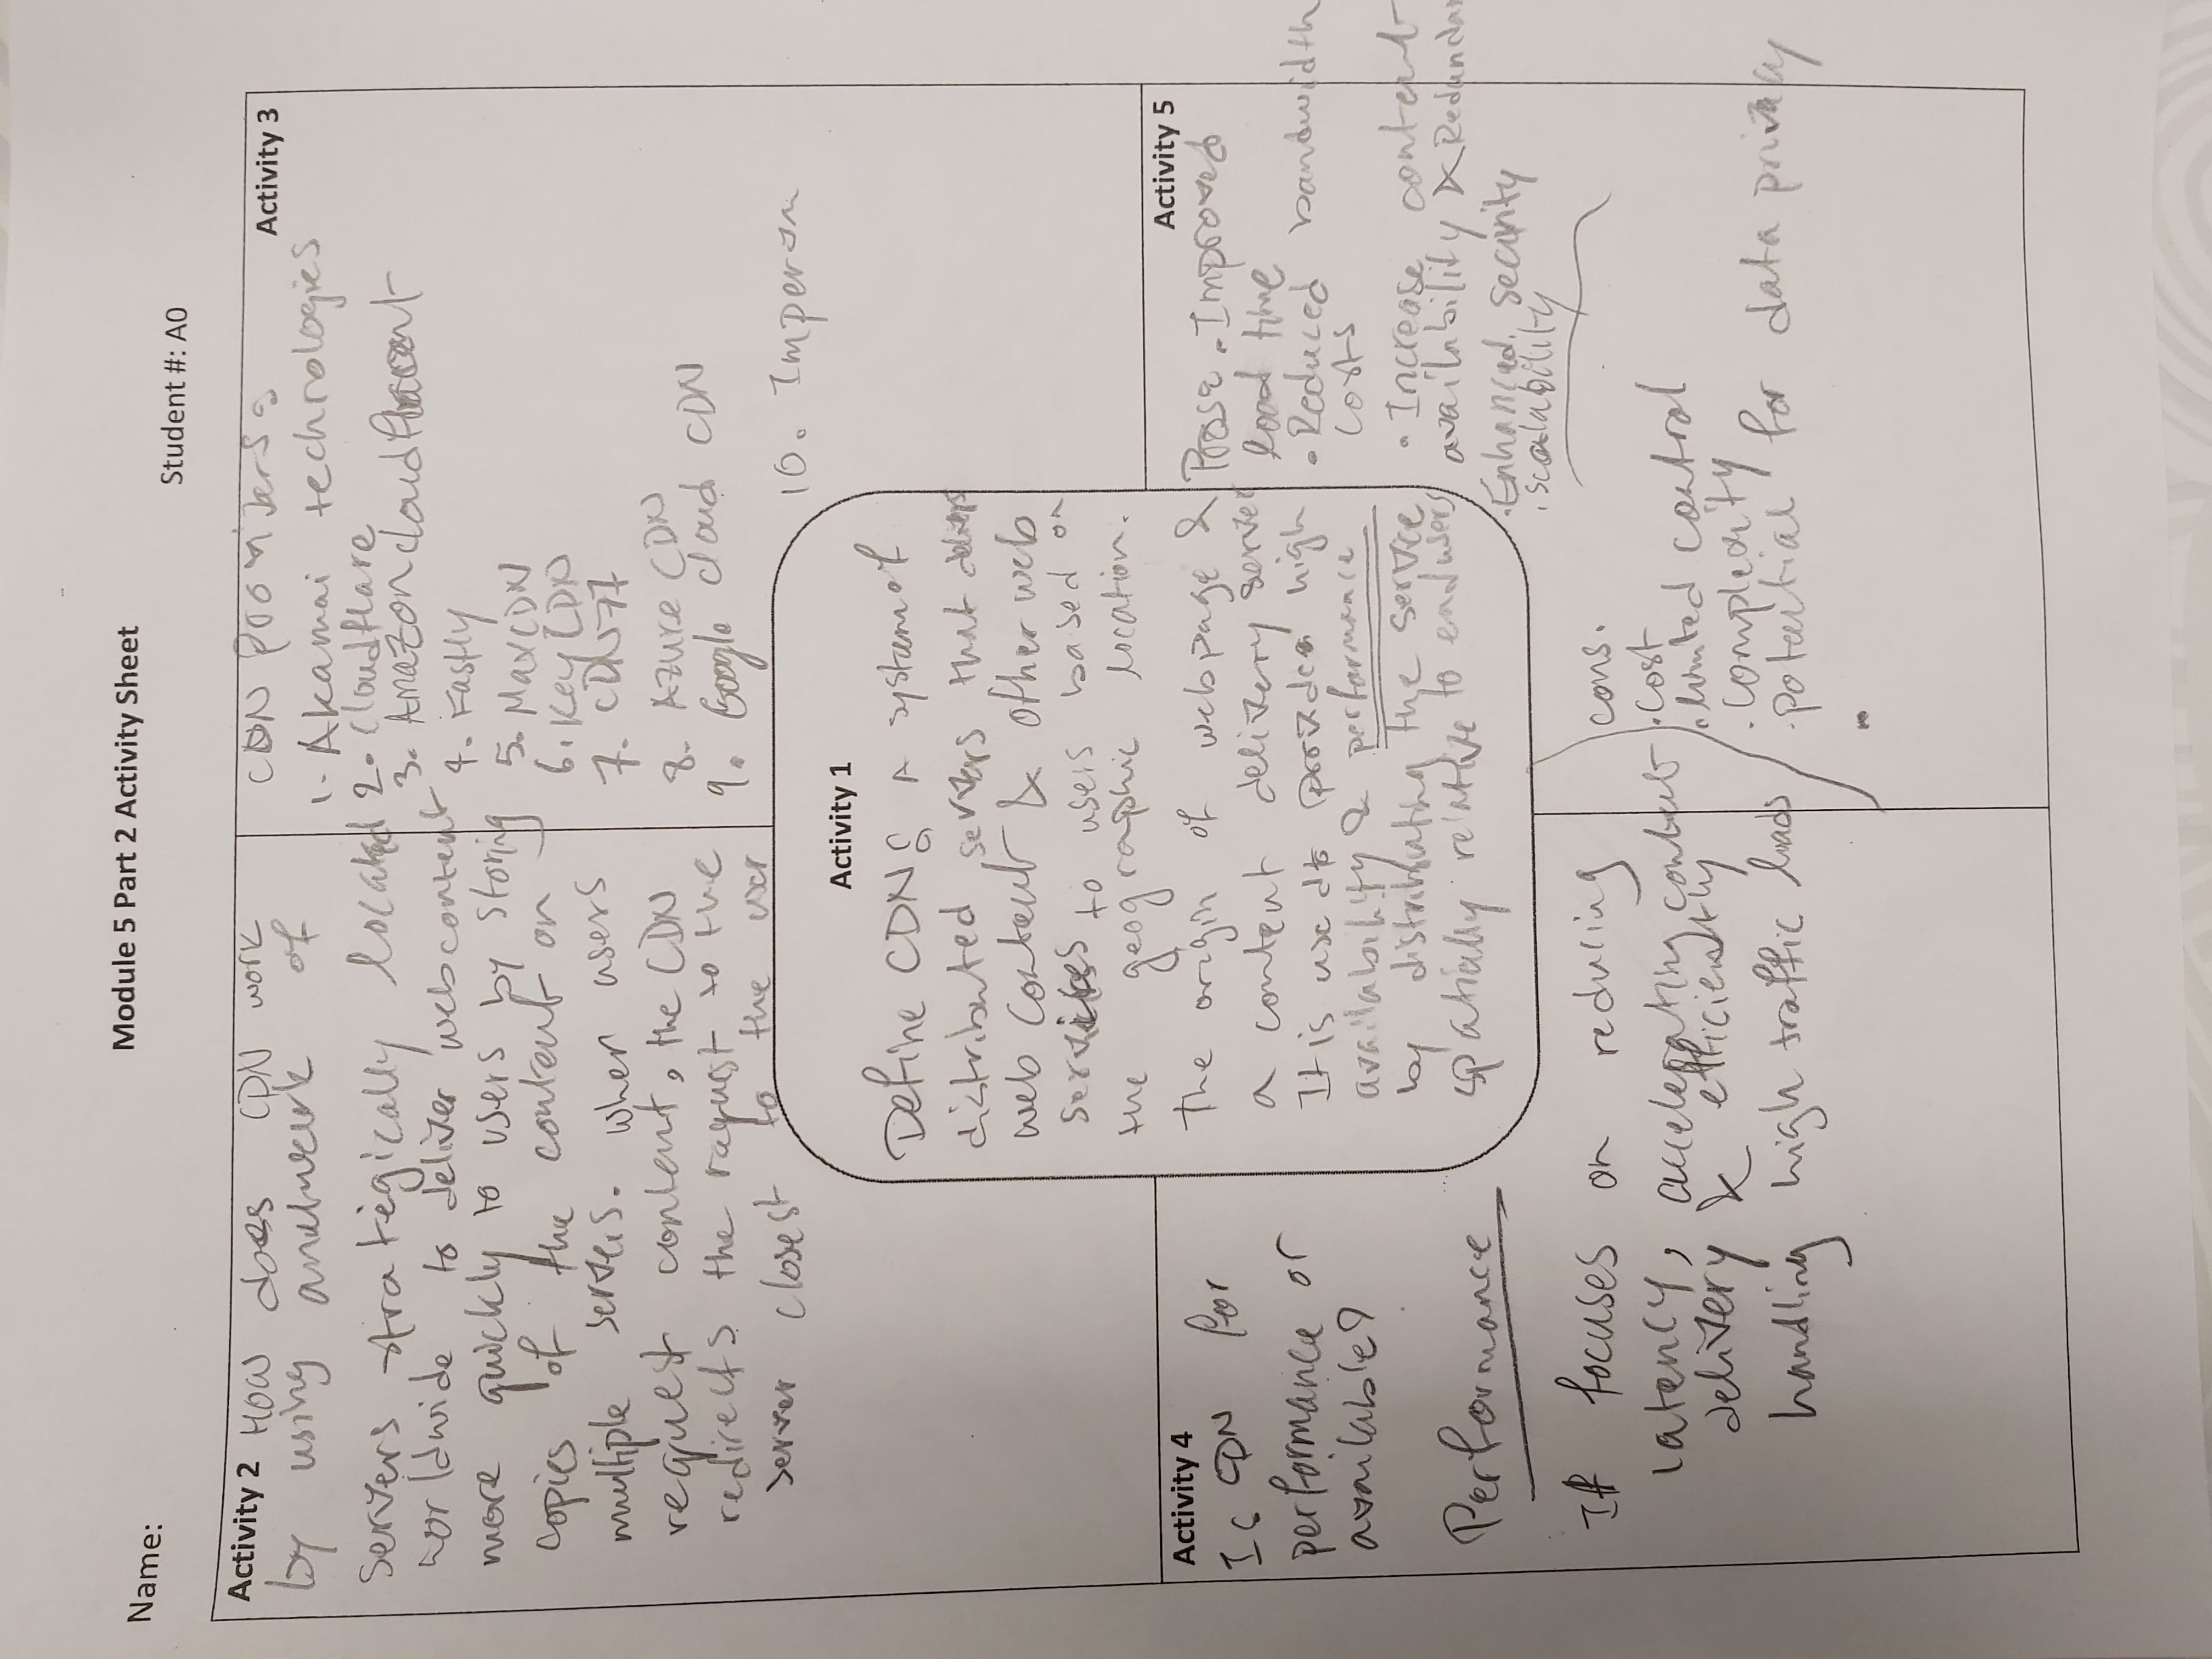 Module 5 Part 2 Activity Sheet
Name:
Student #: A0
Activity 2 How does CDN work
by using anetwork of
servers strategically located
worldwide to deliver web content
more quickly to users by storing
copies of the content on
multiple servers. when users
request content, the CDN
redirects the request to the
server closest to the user
Activity 3
CDN Providers:
1. Akamai technologies
2. Cloudflare
3. Amazon cloudfront
4. Fastly
5. MaxCDN
6. Key CDN
7. CDN77
8. Azure CDN
9. Google cloud CDN
10. Imperva
Activity 1
Define CDN: A system of
distributed servers that delivers
web content & other web
services to users based on
the geographic location.
The origin of webpage &
a content delivery server
It is used to provide high
availability & performance
by distributing the service
spatially relative to end users
Activity 4
Is CDN for
performance or
available?
Performance
It focuses on reducing
latency, accelerating content
delivery & efficiently
handling high traffic loads
Activity 5
Pros: . Improved
load time
. Reduced bandwidth
costs
. Increase content
availability & Redundan
. Enhanced security
. scalability
cons.
. Cost
. limited control
. complexity
. potential for data privacy